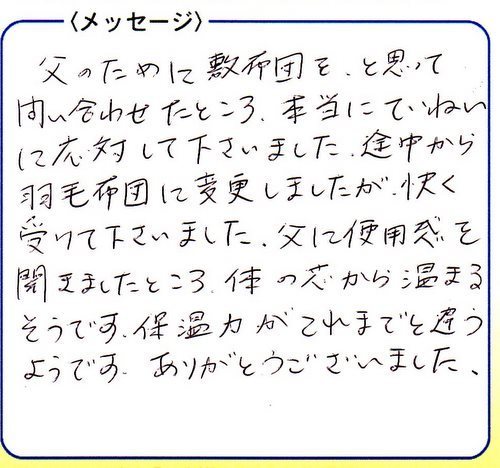 〈メッセージ〉
父のために敷布団を、と思って
問い合わせたところ、本当にていねい
に応対して下さいました。途中から
羽毛布団に変更しましたが、快く
受けて下さいました。父に使用感を
聞きましたところ、体の芯から温まる
そうです。保温力がこれまでと違う
ようです。ありがとうございました。